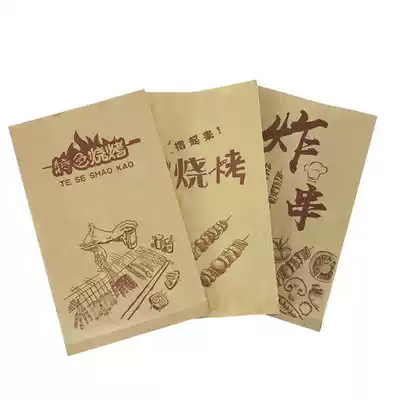 特色烧烤
TE SE SHAO KAO
撸起来！
烧烤
炸串